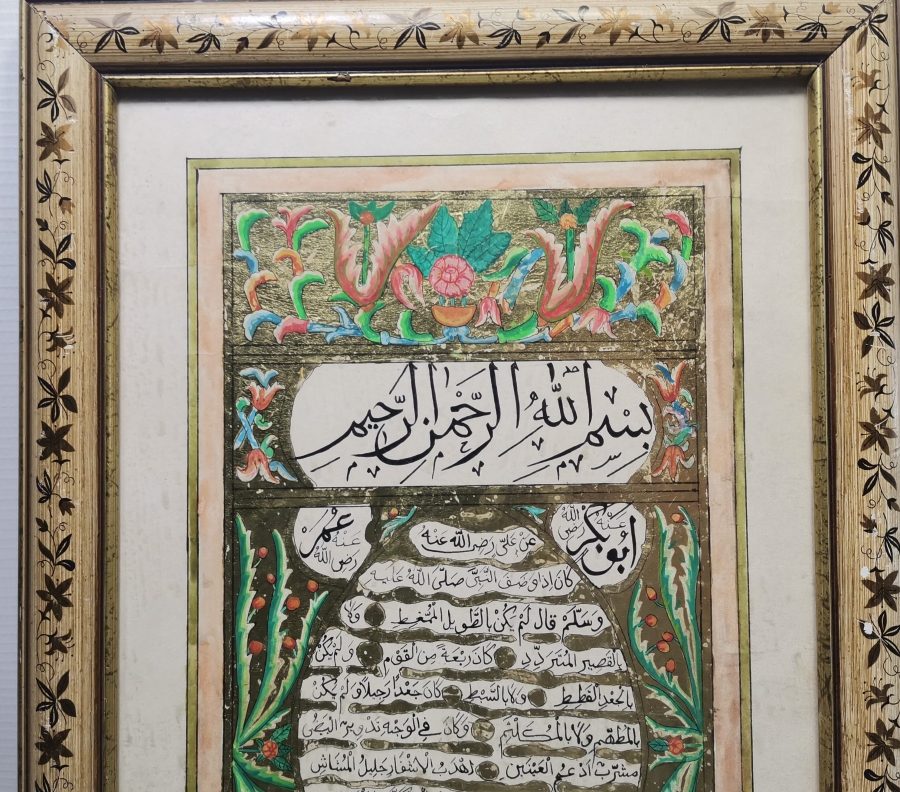 بِسْمِ اللهِ الرَّحْمٰنِ الرَّحِيمِ
ابُو بَكْر رَضِىَ اللهُ عَنْهُ
عُمَر رَضِىَ اللهُ عَنْهُ
عَنْ عَلِىٍّ رَضِىَ اللهُ عَنْهُ
كَانَ اِذَا وَصَفَ النَّبِىَّ صَلَّى اللهُ عَلَيْهِ
وَسَلَّمَ قَالَ لَمْ يَكُنْ بِالطَّوِيلِ الْمُمَّغِطِ وَلَا
بِالْقَصِيرِ الْمُتَرَدِّدِ كَانَ رَبْعَةً مِنَ الْقَوْمِ وَلَمْ يَكُنْ
بِالْجَعْدِ الْقَطَطِ وَلَا بِالسَّبْطِ كَانَ جَعْدًا رَجِلًا وَلَمْ يَكُنْ
بِالْمُطَهَّمِ وَلَا بِالْمُكَلْثَمِ وَكَانَ فِى الْوَجْهِ تَدْوِيرٌ اَبْيَضُ
مُشْرَبٌ اَدْعَجُ الْعَيْنَيْنِ اَهْدَبُ الْاَشْفَارِ جَلِيلُ الْمُشَاشِ